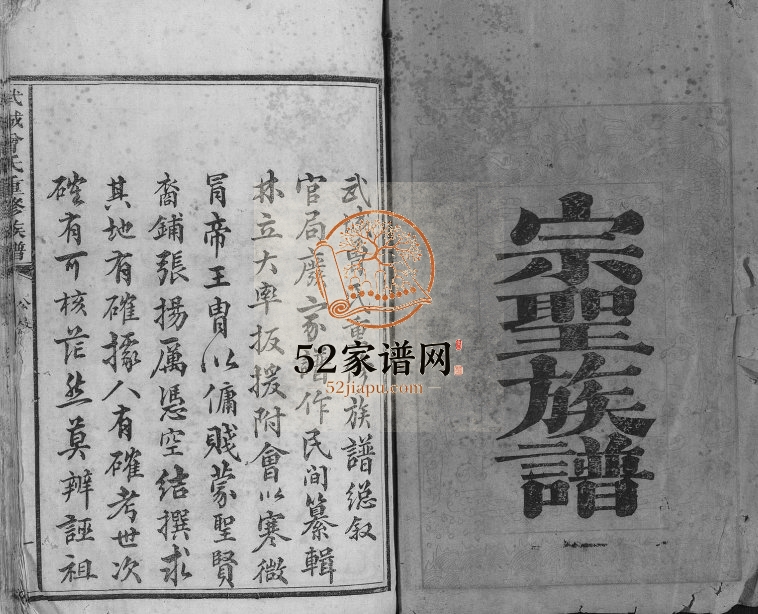 宗聖族譜
武城曾氏重修族譜總敘
官局廢家譜作民間纂輯
林立大率扳援附會以寒微
冐帝王胄以傭賤蒙聖賢
裔鋪張揚厲憑空結撰求
其地有確據人有確考世次
確有可核茫然莫辨誣祖
武城曾氏重修族譜
52家谱网
52jiapu.com